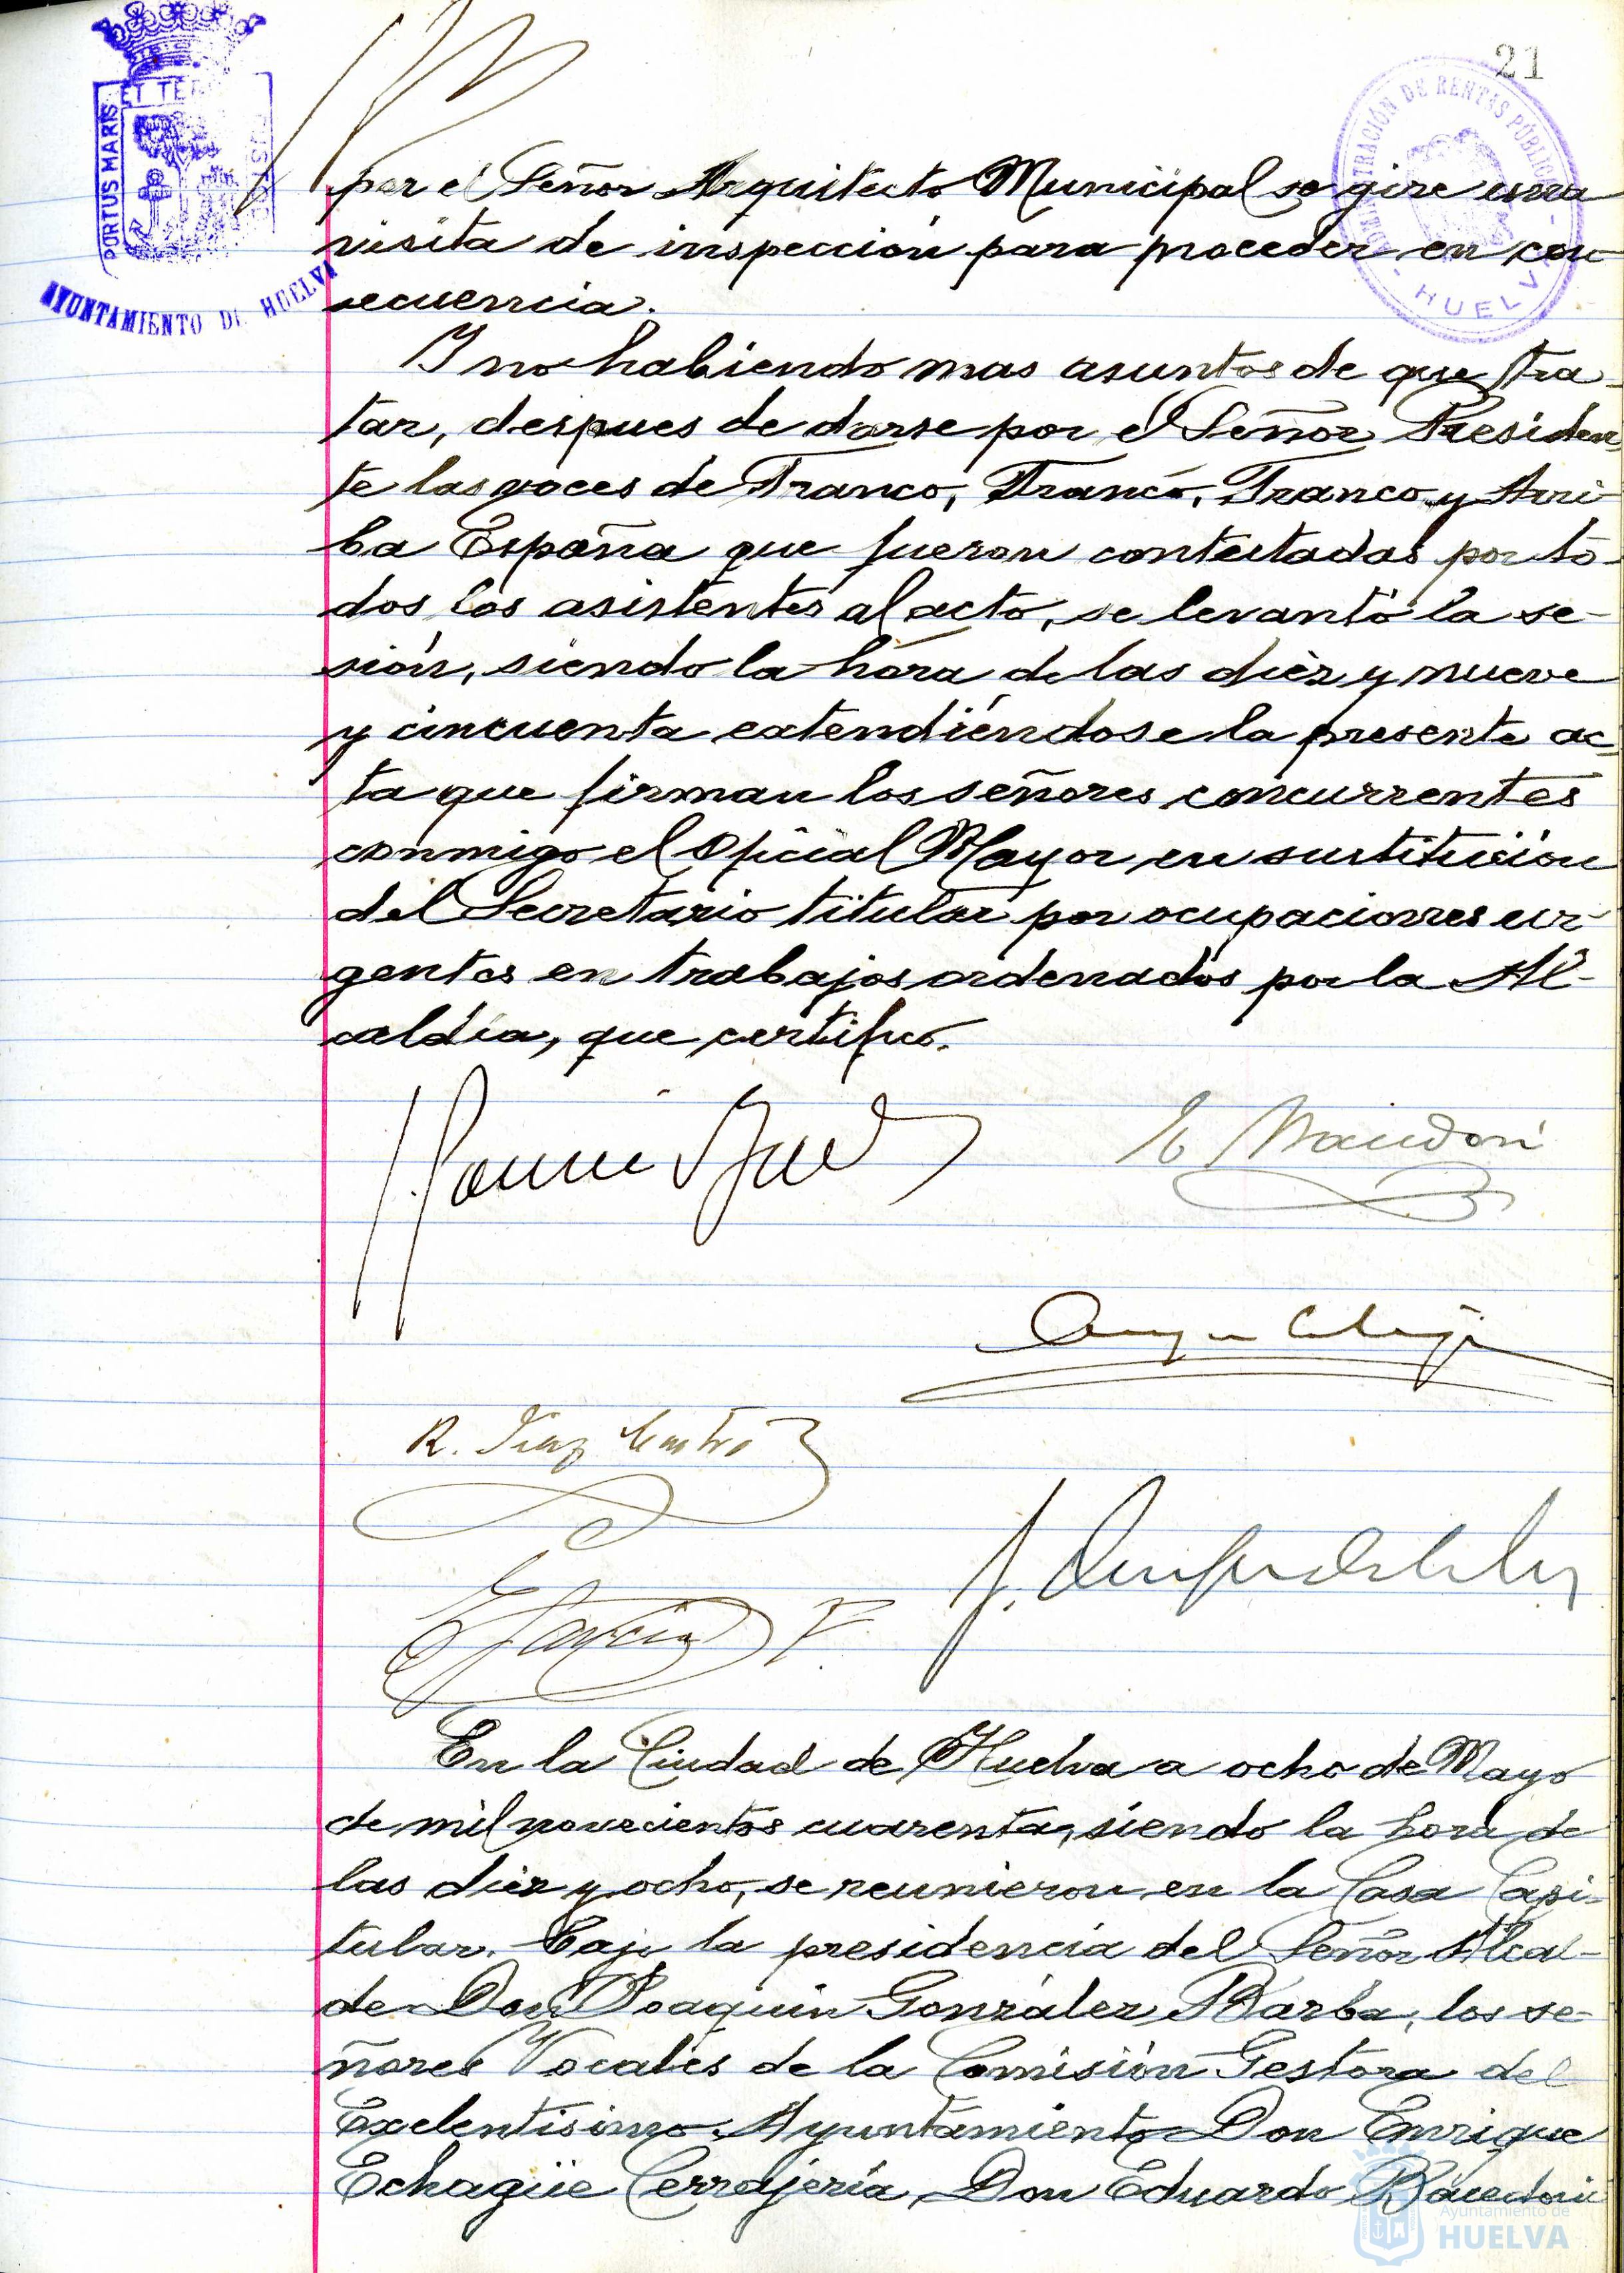 21
PORTUS MARIS
ET TER
AYUNTAMIENTO DE HUELVA
ADMINISTRACIÓN DE RENTAS PÚBLICAS
- HUELVA -
por el Señor Arquitecto Municipal se gire una
visita de inspección para proceder en con-
secuencia.
Y no habiendo mas asuntos de que tra-
tar, despues de darse por el Señor Presiden-
te las voces de Franco, Franco, Franco y Arri-
ba España que fueron contestadas por to-
dos los asistentes al acto, se levantó la se-
sión, siendo la hora de las diez y nueve
y cincuenta extendiéndose la presente ac-
ta que firman los señores concurrentes
conmigo el Oficial Mayor en sustitución
del Secretario titular por ocupaciones ur-
gentes en trabajos ordenados por la Al-
caldía, que certifico.
R. Díaz
García
En la Ciudad de Huelva a ocho de Mayo
de mil novecientos cuarenta, siendo la hora de
las diez y ocho, se reunieron en la Casa Capi-
tular. Bajo la presidencia del Señor Alcal-
de Don Joaquín González Barba, los se-
ñores Vocales de la Comisión Gestora del
Exelentísimo Ayuntamiento Don Enrique
Echagüe Cerrajería, Don Eduardo
Ayuntamiento de
HUELVA